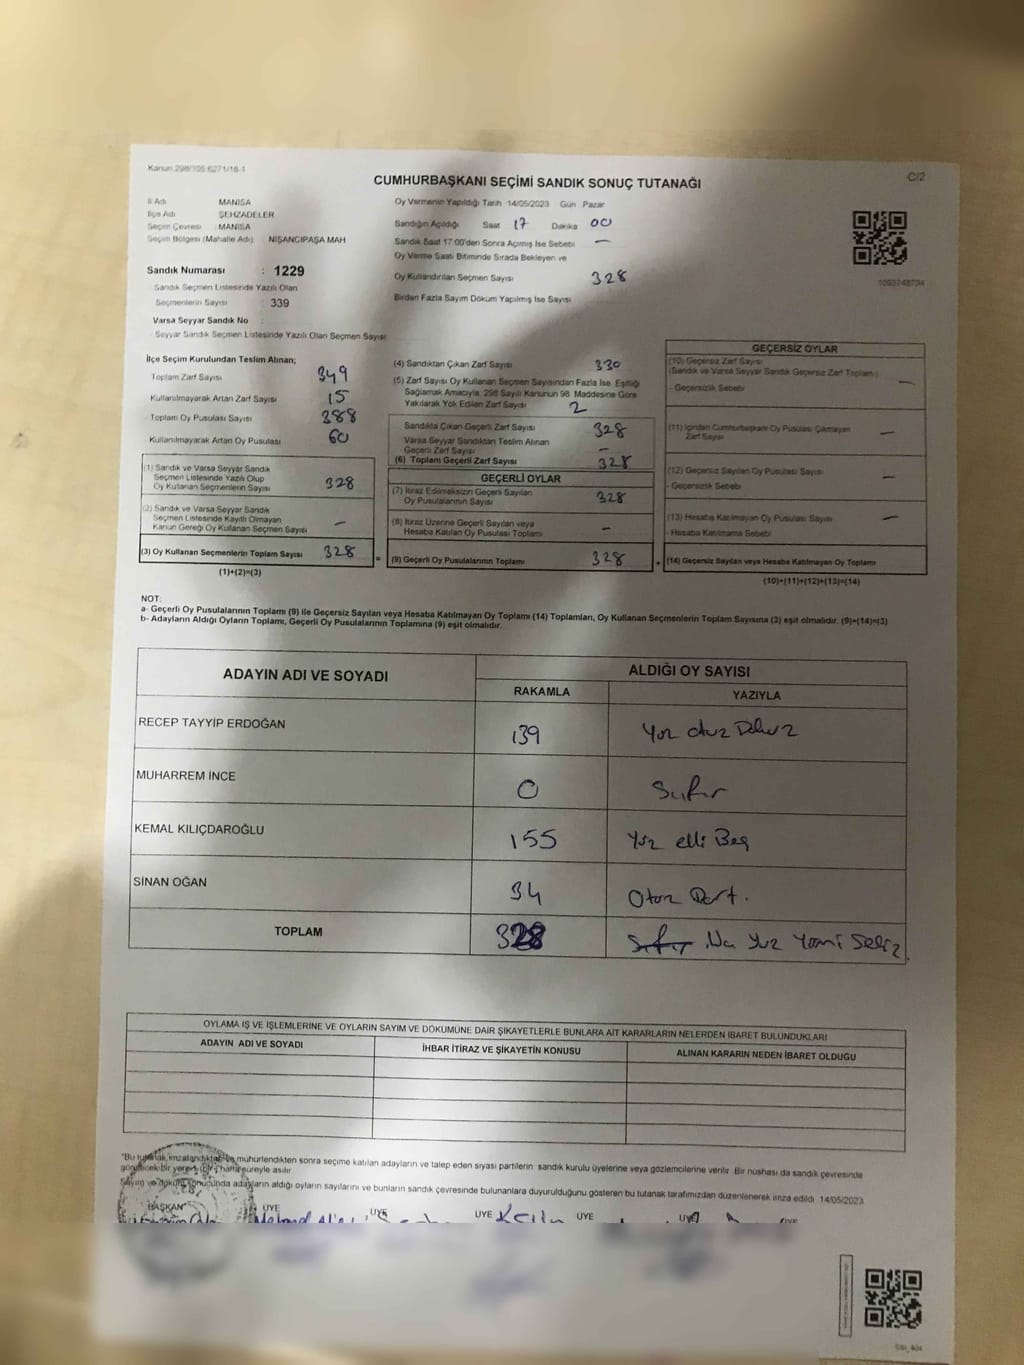 Kanun 298/105 6271/18-1
C/2
CUMHURBAŞKANI SEÇİMİ SANDIK SONUÇ TUTANAĞI
İl Adı : MANİSA
İlçe Adı : ŞEHZADELER
Seçim Çevresi : MANİSA
Seçim Bölgesi (Mahalle Adı) : NİŞANCIPAŞA MAH
Sandık Numarası : 1229
Sandık Seçmen Listesinde Yazılı Olan
Seçmenlerin Sayısı : 339
Varsa Seyyar Sandık No :
Seyyar Sandık Seçmen Listesinde Yazılı Olan Seçmen Sayısı
Oy Vermenin Yapıldığı Tarih 14/05/2023 Gün Pazar
Sandığın Açıldığı Saat 17 Dakika 00
Sandık Saat 17:00'den Sonra Açılmış İse Sebebi —
Oy Verme Saati Bitiminde Sırada Bekleyen ve
Oy Kullandırılan Seçmen Sayısı 328
Birden Fazla Sayım Döküm Yapılmış İse Sayısı
1093748734
İlçe Seçim Kurulundan Teslim Alınan;
Toplam Zarf Sayısı 349
Kullanılmayarak Artan Zarf Sayısı 15
Toplam Oy Pusulası Sayısı 388
Kullanılmayarak Artan Oy Pusulası 60
(1) Sandık ve Varsa Seyyar Sandık
Seçmen Listesinde Yazılı Olup
Oy Kullanan Seçmenlerin Sayısı 328
(2) Sandık ve Varsa Seyyar Sandık
Seçmen Listesinde Kayıtlı Olmayan
Kanun Gereği Oy Kullanan Seçmen Sayısı —
(3) Oy Kullanan Seçmenlerin Toplam Sayısı 328 =
(1)+(2)=(3)
(4) Sandıktan Çıkan Zarf Sayısı 330
(5) Zarf Sayısı Oy Kullanan Seçmen Sayısından Fazla İse, Eşitliği
Sağlamak Amacıyla; 298 Sayılı Kanunun 98. Maddesine Göre
Yakılarak Yok Edilen Zarf Sayısı 2
Sandıkta Çıkan Geçerli Zarf Sayısı 328
Varsa Seyyar Sandıktan Teslim Alınan
Geçerli Zarf Sayısı —
(6) Toplam Geçerli Zarf Sayısı 328
GEÇERLİ OYLAR
(7) İtiraz Edilmeksizin Geçerli Sayılan
Oy Pusulalarının Sayısı 328
(8) İtiraz Üzerine Geçerli Sayılan veya
Hesaba Katılan Oy Pusulası Toplamı —
(9) Geçerli Oy Pusulalarının Toplamı 328 +
GEÇERSİZ OYLAR
(10) Geçersiz Zarf Sayısı
(Sandık ve Varsa Seyyar Sandık Geçersiz Zarf Toplamı)
- Geçersizlik Sebebi —
(11) İçinden Cumhurbaşkanı Oy Pusulası Çıkmayan
Zarf Sayısı —
(12) Geçersiz Sayılan Oy Pusulası Sayısı —
- Geçersizlik Sebebi
(13) Hesaba Katılmayan Oy Pusulası Sayısı —
- Hesaba Katılmama Sebebi
(14) Geçersiz Sayılan veya Hesaba Katılmayan Oy Toplamı
(10)+(11)+(12)+(13)=(14)
NOT:
a- Geçerli Oy Pusulalarının Toplamı (9) ile Geçersiz Sayılan veya Hesaba Katılmayan Oy Toplamı (14) Toplamları, Oy Kullanan Seçmenlerin Toplam Sayısına (3) eşit olmalıdır. (9)+(14)=(3)
b- Adayların Aldığı Oyların Toplamı, Geçerli Oy Pusulalarının Toplamına (9) eşit olmalıdır.
ADAYIN ADI VE SOYADI
ALDIĞI OY SAYISI
RAKAMLA YAZIYLA
RECEP TAYYİP ERDOĞAN 139 Yüz otuz Dokuz
MUHARREM İNCE 0 Sıfır
KEMAL KILIÇDAROĞLU 155 Yüz elli Beş
SİNAN OĞAN 34 Otuz Dört.
TOPLAM 328 Sıfır Üç Yüz Yirmi Sekiz.
OYLAMA İŞ VE İŞLEMLERİNE VE OYLARIN SAYIM VE DÖKÜMÜNE DAİR ŞİKAYETLERLE BUNLARA AİT KARARLARIN NELERDEN İBARET BULUNDUKLARI
ADAYIN ADI VE SOYADI İHBAR İTİRAZ VE ŞİKAYETİN KONUSU ALINAN KARARIN NEDEN İBARET OLDUĞU
"Bu tutanak imzalandıktan ve mühürlendikten sonra seçime katılan adayların ve talep eden siyasi partilerin sandık kurulu üyelerine veya gözlemcilerine verilir. Bir nüshası da sandık çevresinde
görülecek bir yere (Bir) hafta süreyle asılır.
Sayım ve döküm sonucunda adayların aldığı oyların sayılarını ve bunların sandık çevresinde bulunanlara duyurulduğunu gösteren bu tutanak tarafımızdan düzenlenerek imza edildi. 14/05/2023
BAŞKAN ÜYE ÜYE ÜYE ÜYE ÜYE ÜYE